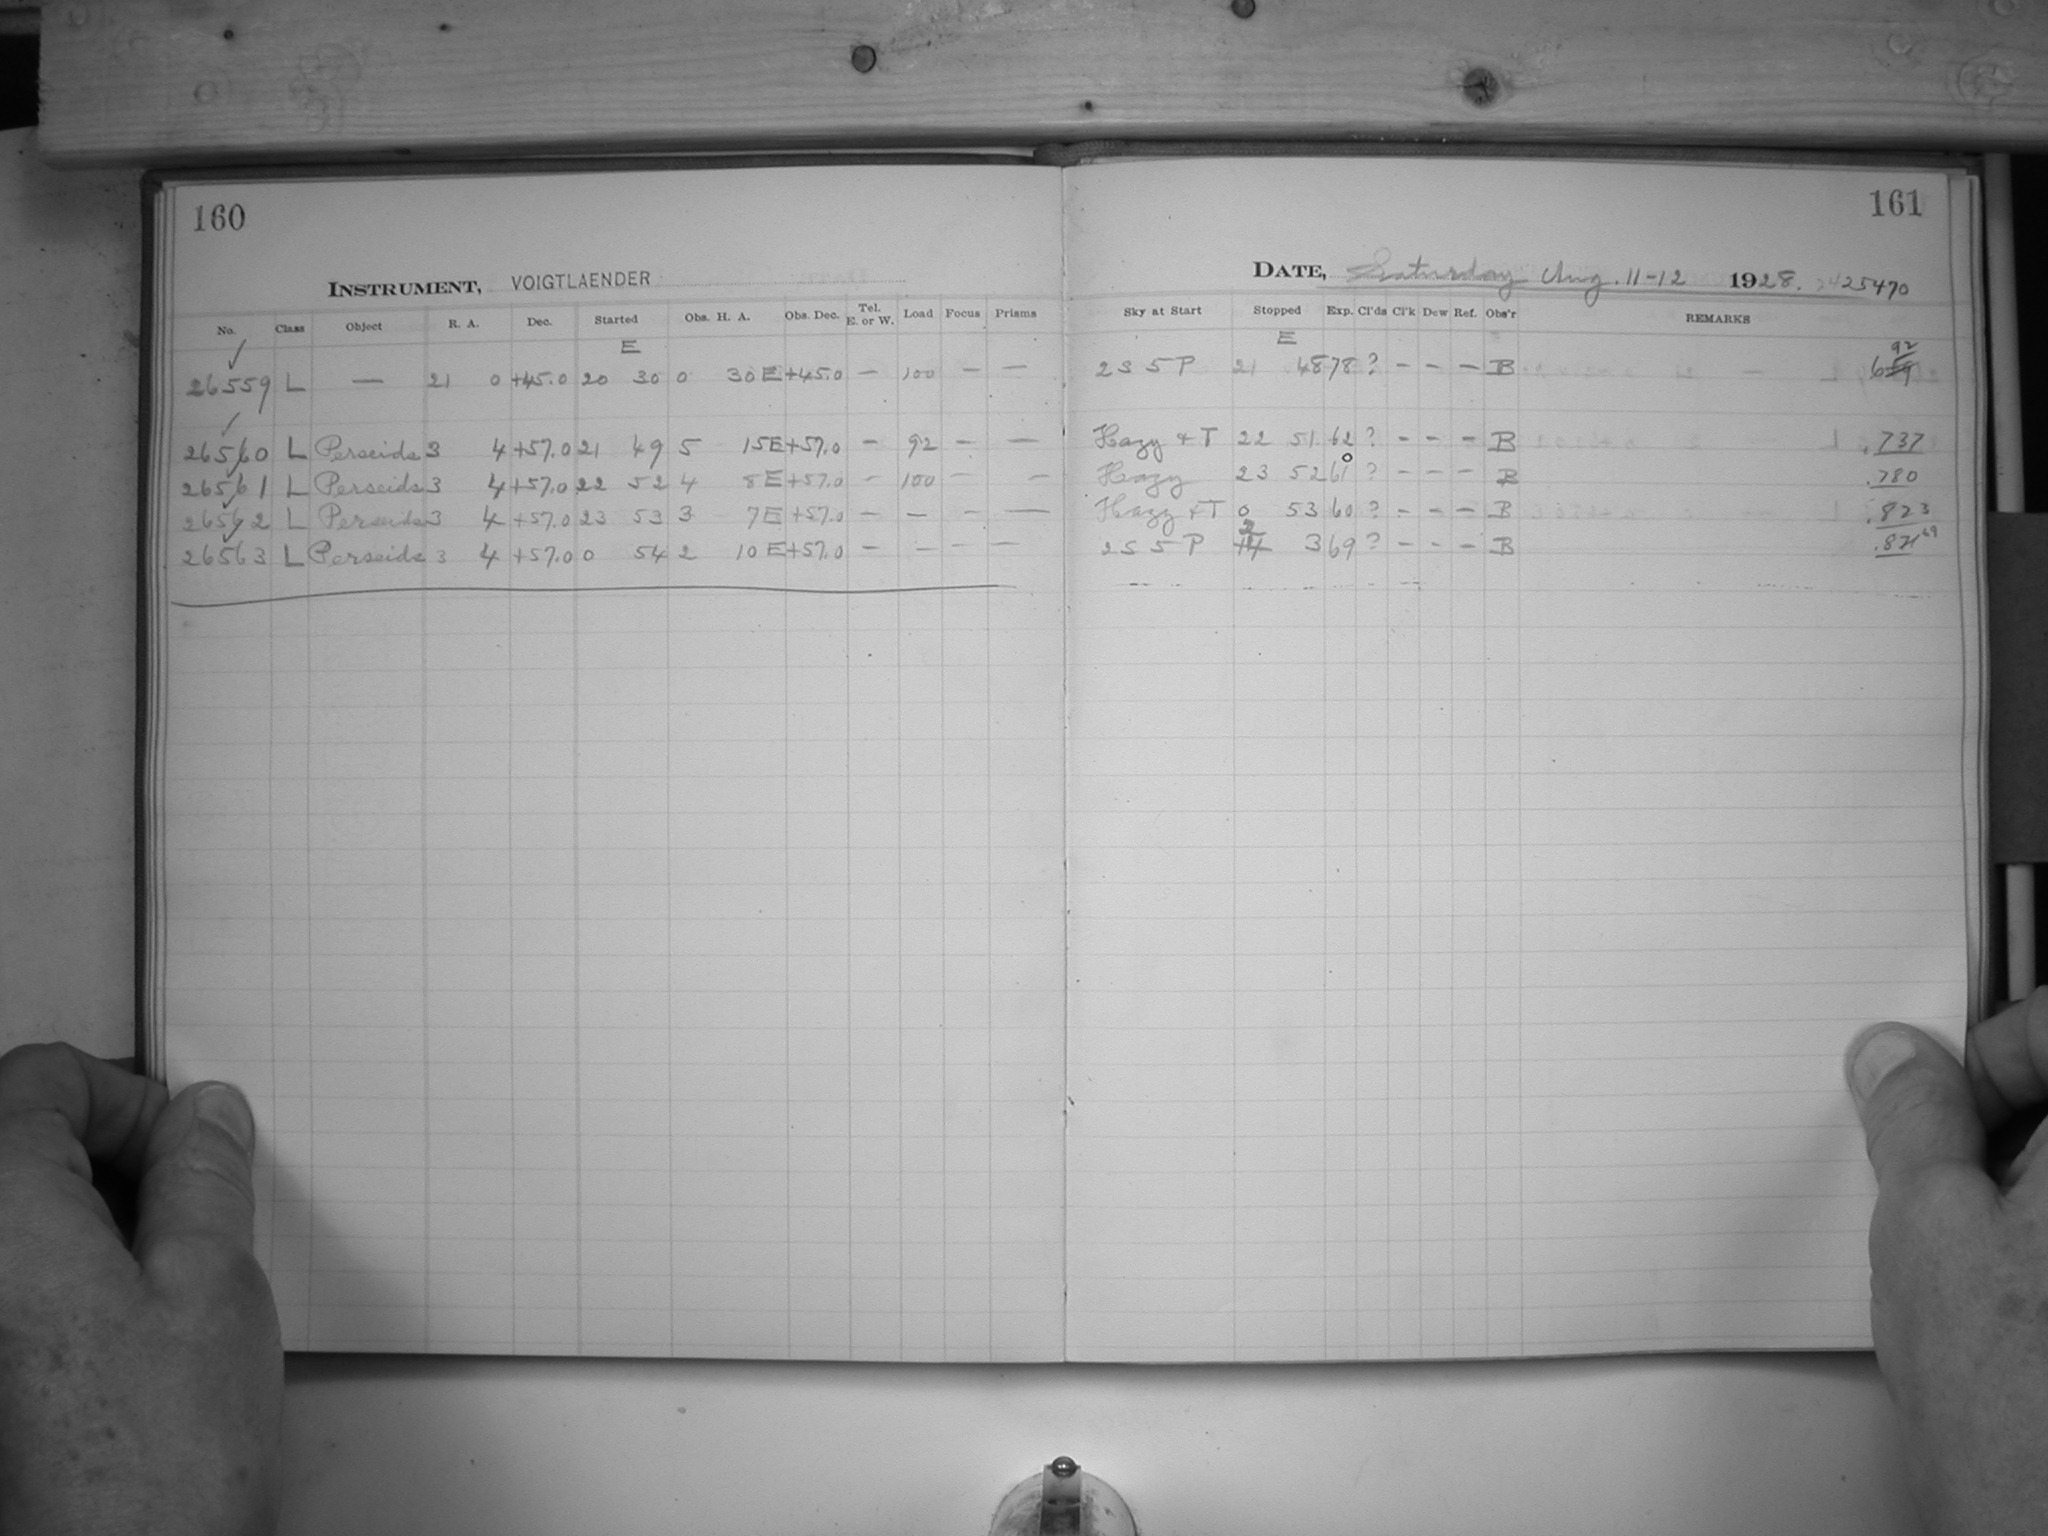 160
INSTRUMENT, VOIGTLAENDER
No. Class Object R. A. Dec. Started Obs. H. A. Obs. Dec. Tel. E. or W. Load Focus Prisms
E
26559 L — 21 0 +45.0 20 30 0 30 E +45.0 — 100 — —
26560 L Perseids 3 4 +57.0 21 49 5 15 E +57.0 — 92 — —
26561 L Perseids 3 4 +57.0 22 52 4 8 E +57.0 — 100 — —
26562 L Perseids 3 4 +57.0 23 53 3 7 E +57.0 — — — —
26563 L Perseids 3 4 +57.0 0 54 2 10 E +57.0 — — — —
161
DATE, Saturday Aug. 11-12 1928. 2425470
Sky at Start Stopped Exp. Cl'ds Cl'k Dew Ref. Obs'r REMARKS
E
92
2 S 5 P 21 48 78 ? — — — B 659
Hazy + T 22 51 62 ? - - - B .737
0
Hazy 23 52 61 ? - - - B .780
Hazy + T 0 53 60 ? - - - B .823
2
2 S 5 P 14 3 69 ? - - - B .871 69